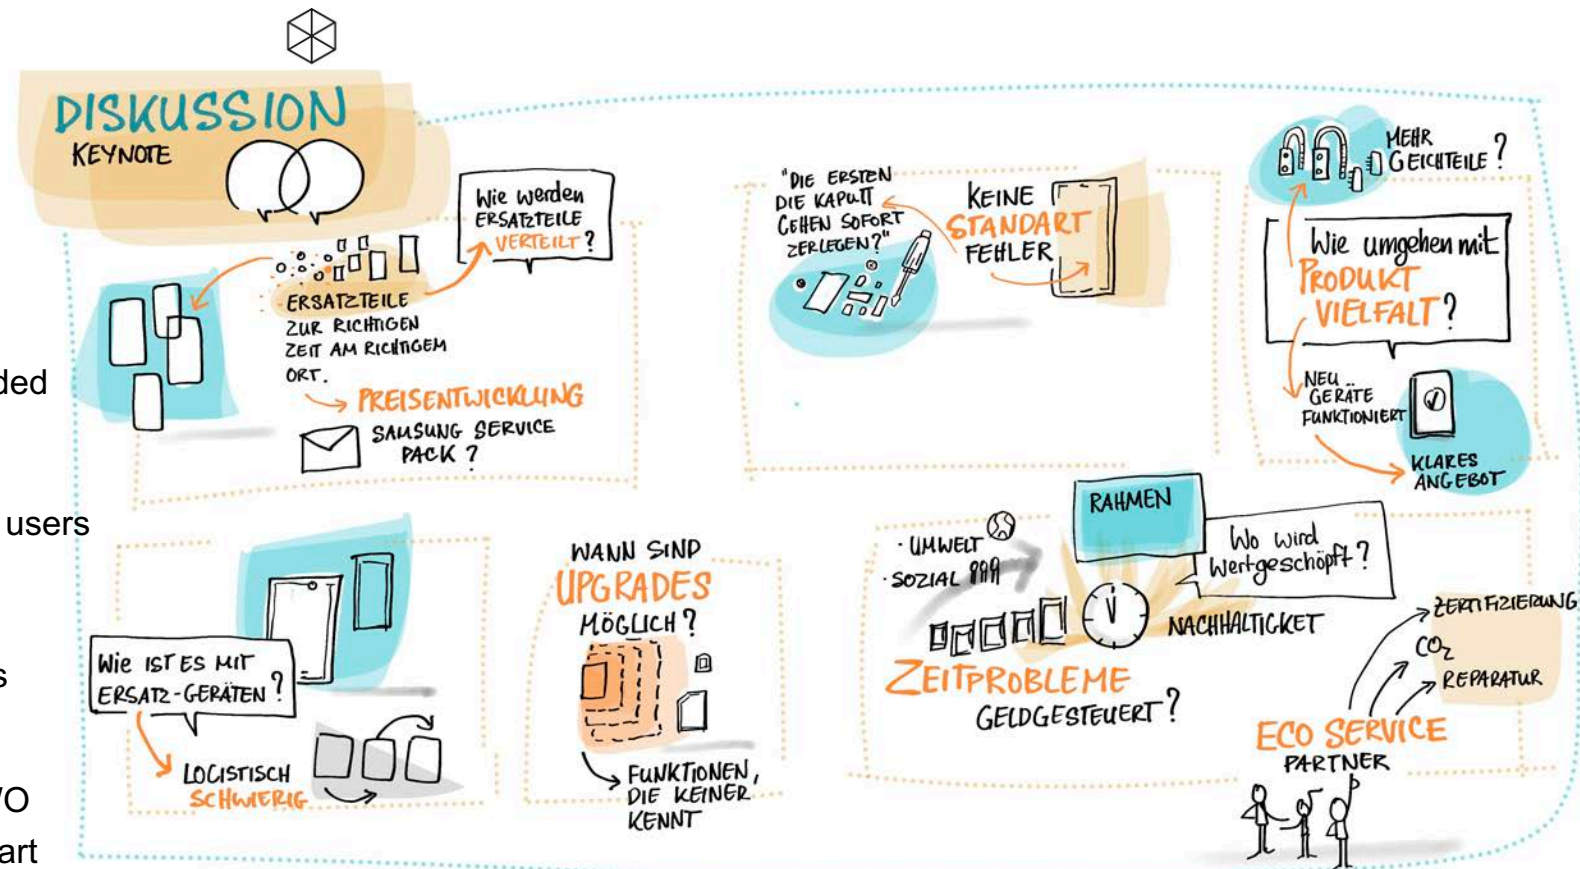 DISKUSSION
KEYNOTE
Wie werden
ERSATZTEILE
VERTEILT?
ERSATZTEILE
ZUR RICHTIGEN
ZEIT AM RICHTIGEM
ORT.
PREISENTWICKLUNG
SAMSUNG SERVICE
PACK?
"DIE ERSTEN
DIE KAPUTT
GEHEN SOFORT
ZERLEGEN?"
KEINE
STANDART
FEHLER
MEHR
GEICHTEILE?
Wie umgehen mit
PRODUKT
VIELFALT?
NEU
GERÄTE
FUNKTIONIERT
KLARES
ANGEBOT
ded
users
s
/O
art
Wie IST ES MIT
ERSATZ-GERÄTEN?
LOGISTISCH
SCHWIERIG
WANN SIND
UPGRADES
MÖGLICH?
FUNKTIONEN,
DIE KEINER
KENNT
RAHMEN
· UMWELT
· SOZIAL
Wo wird
Wertgeschöpft?
NACHHALTICKET
ZEITPROBLEME
GELDGESTEUERT?
ZERTIFIZIERUNG
CO2
REPARATUR
ECO SERVICE
PARTNER